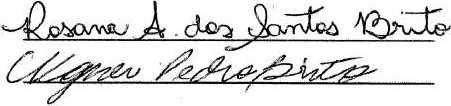 Rosana A. dos Santos Brito
Pedro Brito